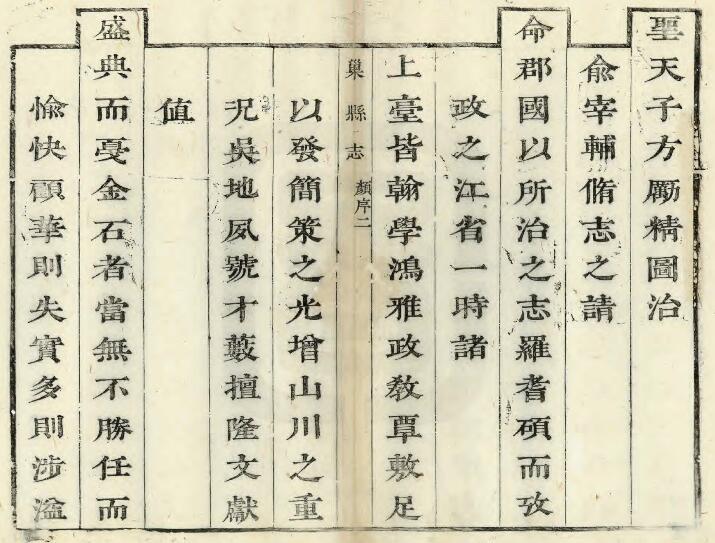 聖天子方厲精圖治
俞宰輔脩志之請
命郡國以所治之志羅耆碩而攷
政之江省一時諸
上臺皆翰學鴻雅政敎覃敷足
巢縣志 顏序二
以發簡策之光增山川之重
况吳地夙號才藪擅隆文獻
值
盛典而戞金石者當無不勝任而
愉快顧華則失實多則涉溢